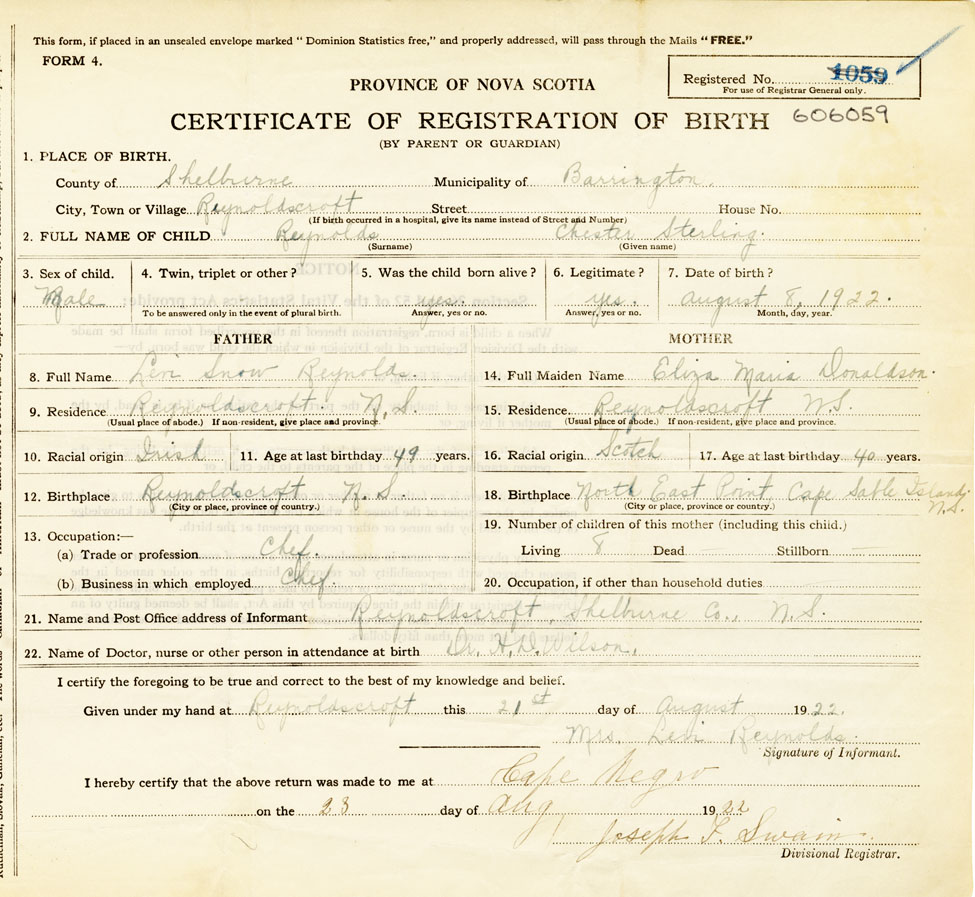 This form, if placed in an unsealed envelope marked “ Dominion Statistics free,” and properly addressed, will pass through the Mails “FREE.”
FORM 4.
Registered No. 1059
For use of Registrar General only.
PROVINCE OF NOVA SCOTIA
CERTIFICATE OF REGISTRATION OF BIRTH 606059
(BY PARENT OR GUARDIAN)
1. PLACE OF BIRTH.
County of Shelburne Municipality of Barrington.
City, Town or Village Reynoldscroft Street House No.
(If birth occurred in a hospital, give its name instead of Street and Number)
2. FULL NAME OF CHILD Reynolds Chester Sterling.
(Surname) (Given name)
3. Sex of child. 4. Twin, triplet or other? 5. Was the child born alive? 6. Legitimate? 7. Date of birth?
Male yes. yes. August 8, 1922.
To be answered only in the event of plural birth. Answer, yes or no. Answer, yes or no. Month, day, year.
FATHER MOTHER
8. Full Name Levi Snow Reynolds. 14. Full Maiden Name Eliza Maria Donaldson.
9. Residence Reynoldscroft. N.S. 15. Residence. Reynoldscroft N.S.
(Usual place of abode.) If non-resident, give place and province. (Usual place of abode.) If non-resident, give place and province.
10. Racial origin Irish 11. Age at last birthday 49 years. 16. Racial origin Scotch 17. Age at last birthday 40 years.
12. Birthplace Reynoldscroft N.S. 18. Birthplace North East Point, Cape Sable Island, N.S.
(City or place, province or country.) (City or place, province or country.)
13. Occupation:— 19. Number of children of this mother (including this child.)
(a) Trade or profession Chef. Living 8 Dead — Stillborn —
(b) Business in which employed Chef. 20. Occupation, if other than household duties
21. Name and Post Office address of Informant Reynoldscroft, Shelburne Co., N.S.
22. Name of Doctor, nurse or other person in attendance at birth Dr. H.D. Wilson.
I certify the foregoing to be true and correct to the best of my knowledge and belief.
Given under my hand at Reynoldscroft this 21st day of August 1922.
Mrs. Levi Reynolds.
Signature of Informant.
I hereby certify that the above return was made to me at Cape Negro
on the 23 day of Aug 1922
Joseph F. Swain.
Divisional Registrar.